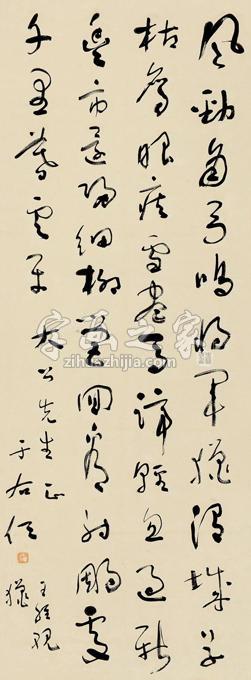 風勁角弓鳴將軍獵渭城草
枯鷹眼疾雪盡馬蹄輕忽過新
豐市還歸細柳營回看射鵰處
千里暮雲平
大公先生正
于右任
王維觀
獵
字画之家
zihuazhijia.com